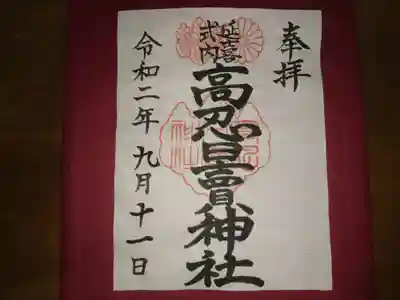 奉拝
延喜
式内
高忍日賣神社
令和二年九月十一日